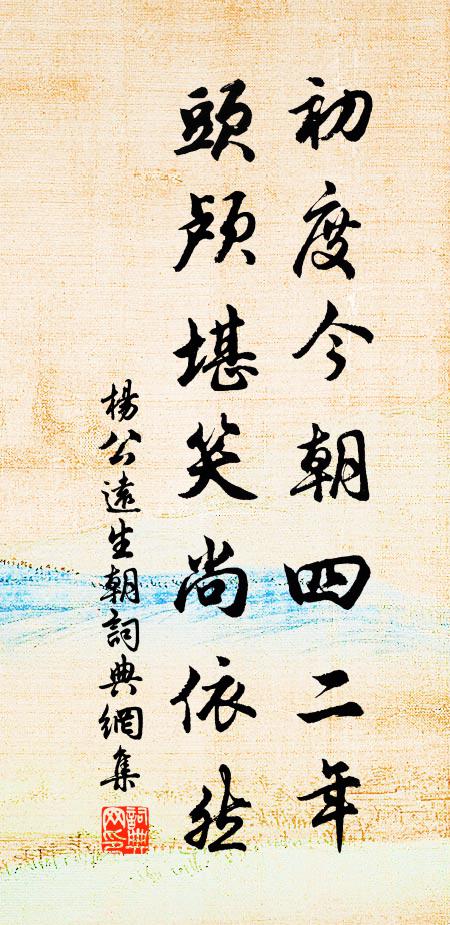 初度今朝四二年
頭顱堪笑尚依然
楊公遠生朝詞典網集
詞典網印